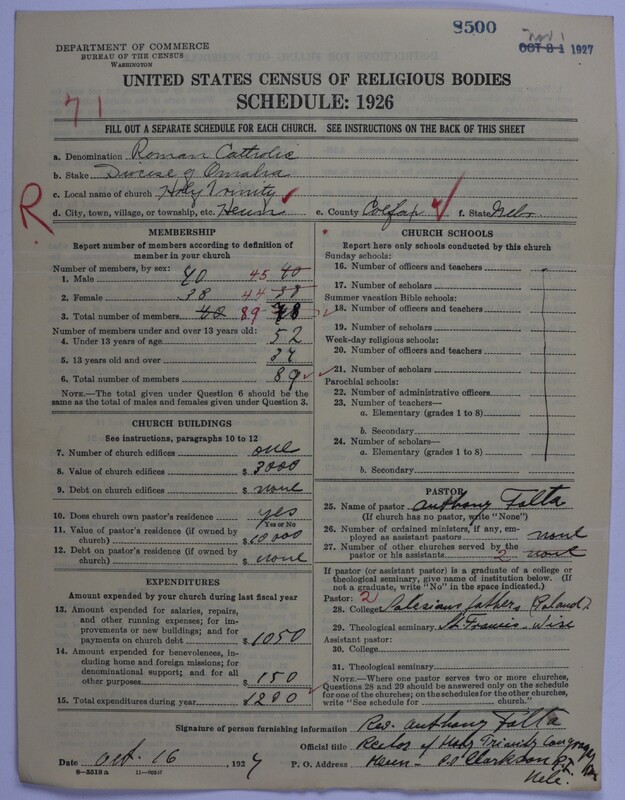 8500
Nov 1
OCT 21 1927
DEPARTMENT OF COMMERCE
BUREAU OF THE CENSUS
WASHINGTON
UNITED STATES CENSUS OF RELIGIOUS BODIES
SCHEDULE: 1926
71
FILL OUT A SEPARATE SCHEDULE FOR EACH CHURCH. SEE INSTRUCTIONS ON THE BACK OF THIS SHEET
a. Denomination Roman Catholic
b. Stake Diocese of Omaha
c. Local name of church Holy Trinity
R
d. City, town, village, or township, etc. Heun e. County Colfax f. State Nebr.
MEMBERSHIP
Report number of members according to definition of
member in your church
Number of members, by sex:
1. Male 40 45 40
2. Female 38 44 38
3. Total number of members 89 78
Number of members under and over 13 years old:
4. Under 13 years of age 52
5. 13 years old and over 37
6. Total number of members 89
NOTE.—The total given under Question 6 should be
the same as the total of males and females given under Question 3.
CHURCH BUILDINGS
See instructions, paragraphs 10 to 12
7. Number of church edifices one
8. Value of church edifices $ 3000
9. Debt on church edifices $ none
10. Does church own pastor's residence yes
Yes or No
11. Value of pastor's residence (if owned by
church) $ 10000
12. Debt on pastor's residence (if owned by
church) $ none
EXPENDITURES
Amount expended by your church during last fiscal year
13. Amount expended for salaries, repairs,
and other running expenses; for im-
provements or new buildings; and for
payments on church debt $ 1050
14. Amount expended for benevolences, in-
cluding home and foreign missions; for
denominational support; and for all
other purposes $ 150
15. Total expenditures during year $ 1200
CHURCH SCHOOLS
Report here only schools conducted by this church
Sunday schools:
16. Number of officers and teachers
17. Number of scholars
Summer vacation Bible schools:
18. Number of officers and teachers
19. Number of scholars
Week-day religious schools:
20. Number of officers and teachers
21. Number of scholars
Parochial schools:
22. Number of administrative officers
23. Number of teachers—
a. Elementary (grades 1 to 8)
b. Secondary
24. Number of scholars—
a. Elementary (grades 1 to 8)
b. Secondary
PASTOR
25. Name of pastor Anthony Folta
(If church has no pastor, write "None")
26. Number of ordained ministers, if any, em-
ployed as assistant pastors none
27. Number of other churches served by the
pastor or his assistants 2 none
If pastor (or assistant pastor) is a graduate of a college or
theological seminary, give name of institution below. (If
not a graduate, write "No" in the space indicated.)
Pastor: 2
28. College Salesians fathers Poland
29. Theological seminary St Francis - Wisc
Assistant pastor:
30. College
31. Theological seminary
NOTE.—Where one pastor serves two or more churches,
Questions 28 and 29 should be answered only on the schedule
for one of the churches; on the schedules for the other churches,
write "See schedule for church."
Signature of person furnishing information Rev. Anthony Folta
Official title Rector of Holy Trinity
Date Oct. 16, 1927 P. O. Address Heun - Clarkson
Nebr.
8-5518a 11-9051